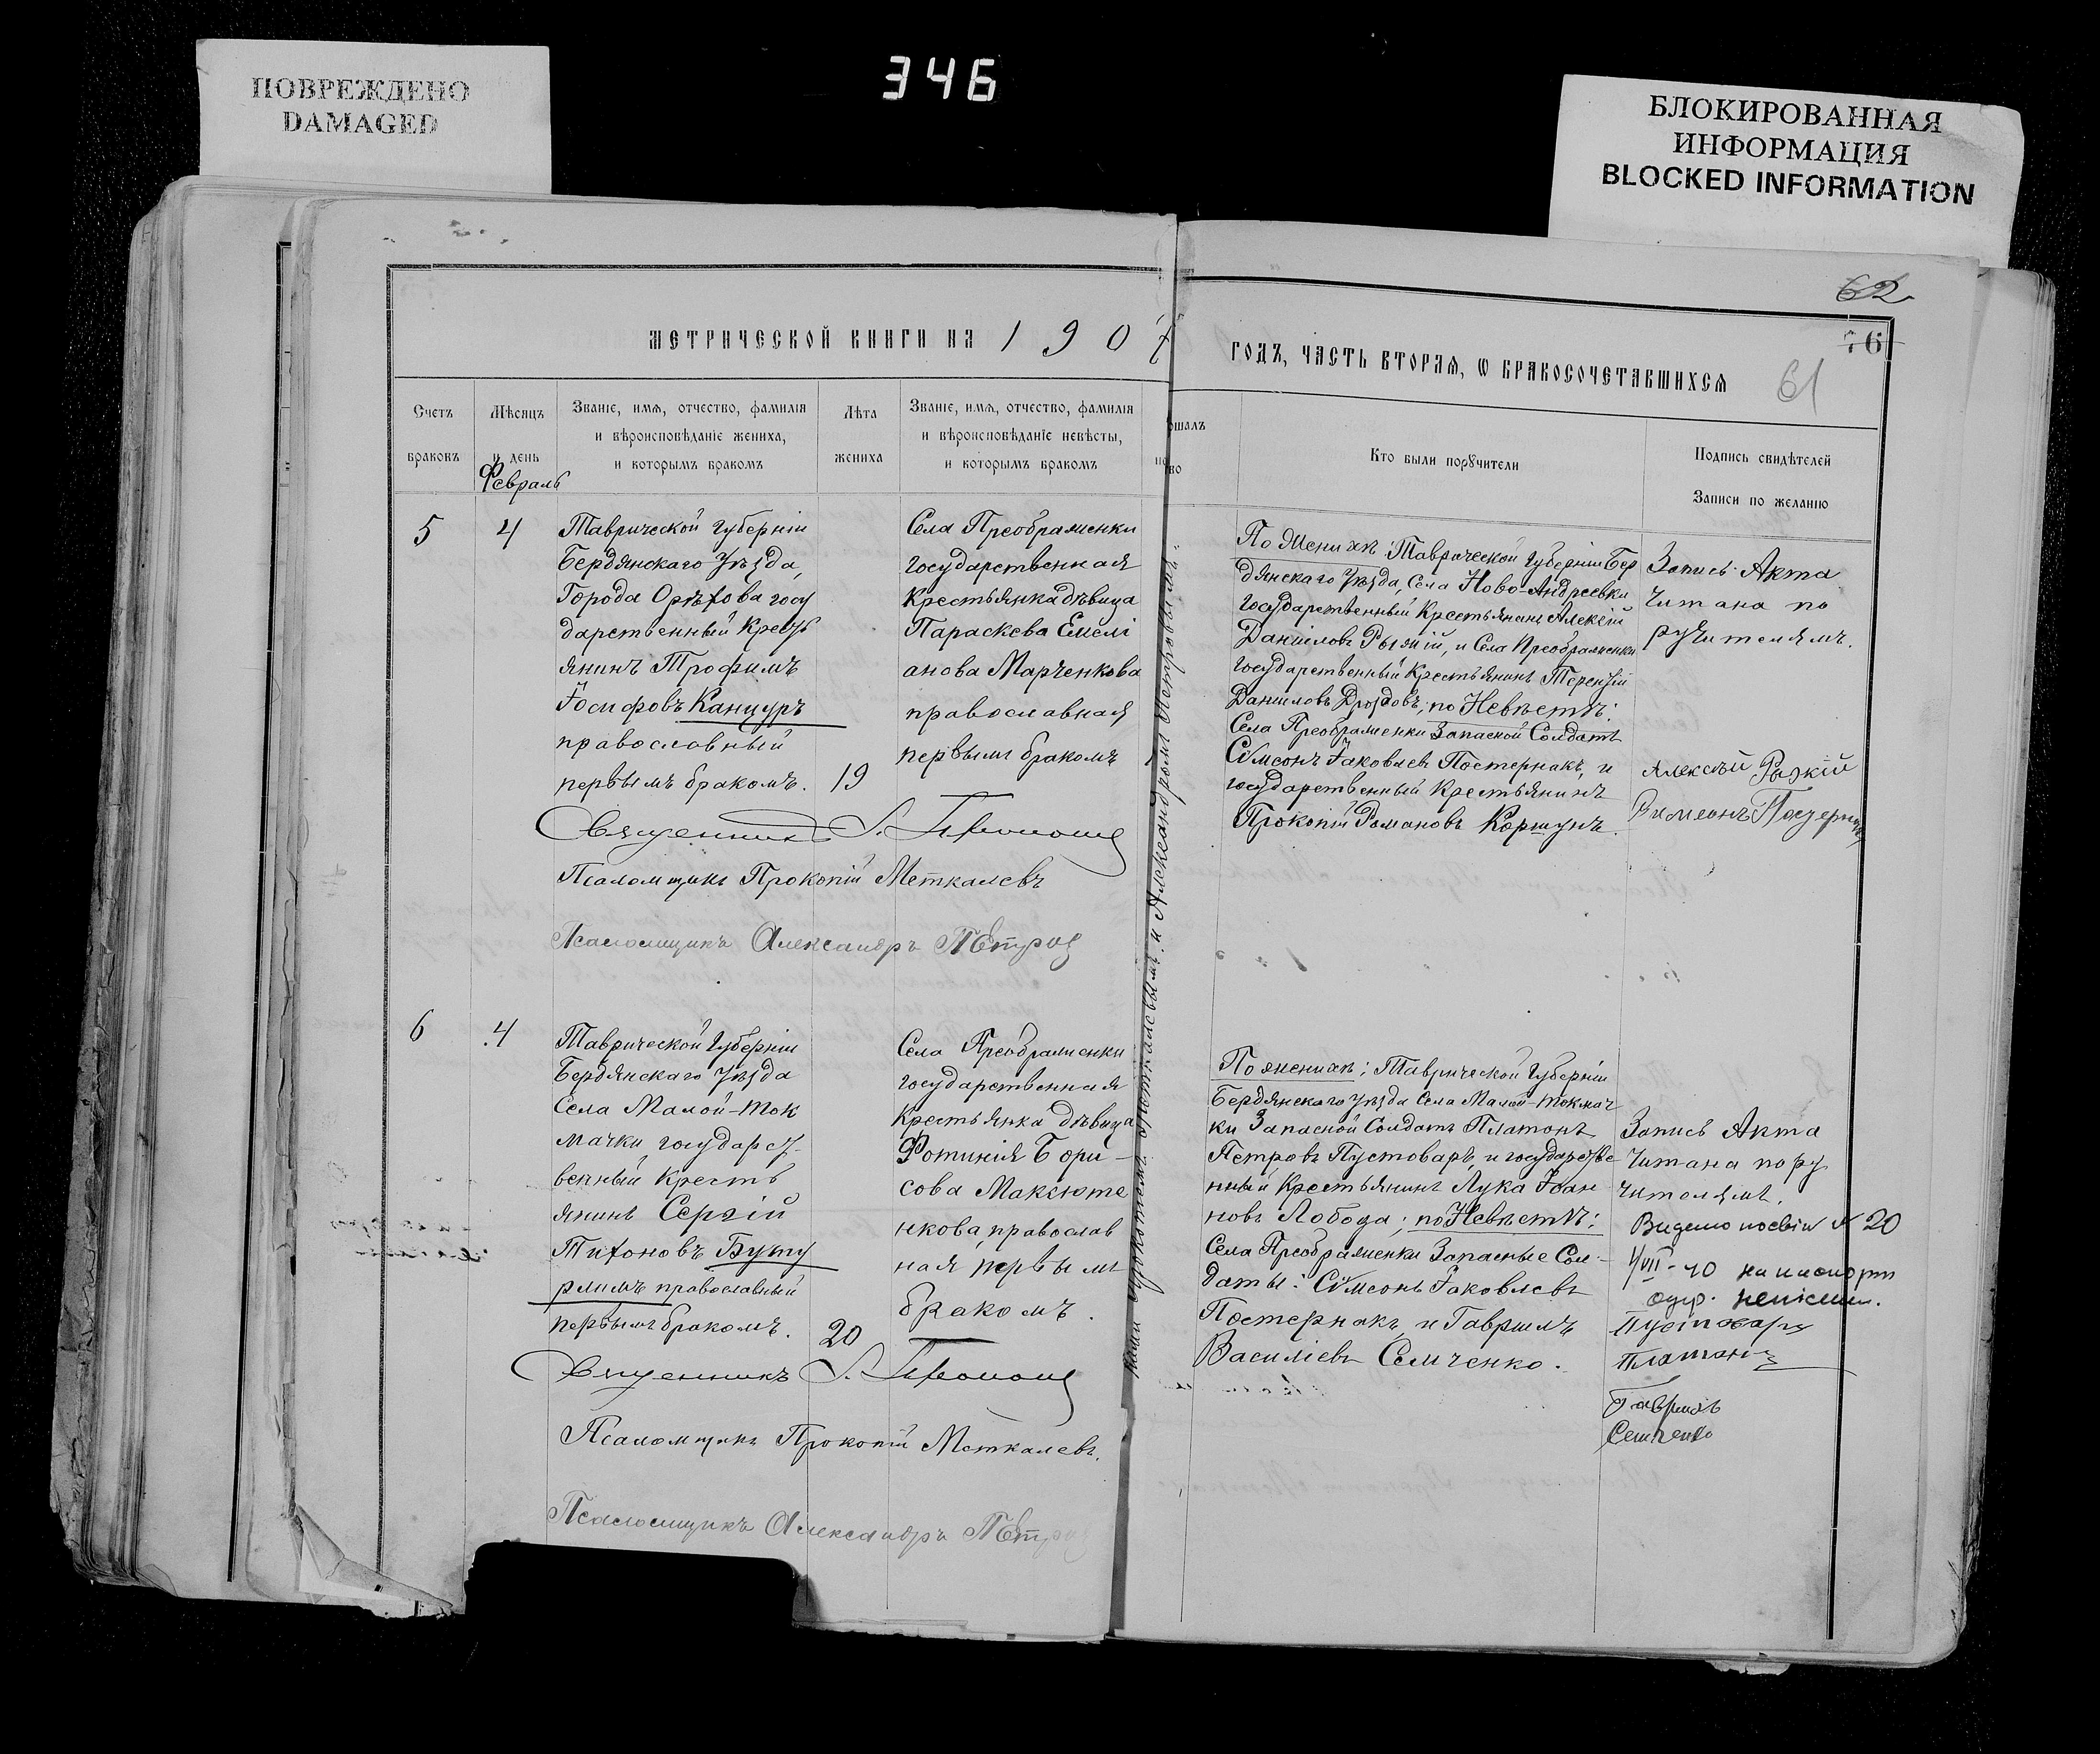 ПОВРЕЖДЕНО
DAMAGED
346
БЛОКИРОВАННАЯ
ИНФОРМАЦИЯ
BLOCKED INFORMATION
62
76
61
МЕТРИЧЕСКОЙ КНИГИ НА 1907
ГОДЪ, ЧАСТЬ ВТОРАЯ, Ѡ БРАКОСОЧЕТАВШИХСЯ
Счетъ
браковъ
Мѣсяцъ
и день
Февраль
Званіе, имя, отчество, фамилія
и вѣроисповѣданіе жениха,
и которымъ бракомъ
Лѣта
жениха
Званіе, имя, отчество, фамилія
и вѣроисповѣданіе невѣсты,
и которымъ бракомъ
ршалъ
Кто были поручители
Подпись свидѣтелей
Записи по желанію
5
4
Таврической Губерніи
Бердянскаго Уѣзда,
Города Орѣхова госу
дарственный Кресть
янинъ Трофимъ
Іосифовъ Канцуръ
православный
первымъ бракомъ.
19
Села Преображенки
государственная
Крестьянка дѣвица
Параскева Емелі
анова Марченкова
православная
первымъ бракомъ
По Женихѣ: Таврической Губерніи Бер
дянскаго Уѣзда, Села Ново-Андреевки
государственный Крестьянинъ Алексій
Даниловъ Рыжій, и Села Преображенки
государственный Крестьянинъ Терентій
Даниловъ Дроздовъ; по Невѣстѣ:
Села Преображенки Запасной Солдатъ
Сѵмеонъ Іаковлевъ Постернакъ, и
государственный Крестьянинъ
Прокопій Романовъ Коршунъ.
Запись Акта
читана по
ручителямъ.
Алексѣй Рыжій
Симеонъ Постернакъ
Священникъ
Псаломщикъ Прокопій Меткалевъ
Псаломщикъ Александръ Петровъ
6
4
Таврической Губерніи
Бердянскаго Уѣзда
Села Малой-Ток
мачки, государст-
венный Кресть
янинъ Сергій
Тихоновъ Буту
рлимъ православный
первымъ бракомъ.
20
Села Преображенки
государственная
Крестьянка дѣвица
Фотинія Бори-
сова Максюте
нкова, православ
ная первымъ
бракомъ.
По женихѣ; Таврической Губерніи
Бердянскаго Уѣзда Села Малой-Токмач
ки Запасной Солдатъ Платонъ
Петровъ Пустоваръ, и государстве
нный Крестьянинъ Лука Іоан
новъ Лобода; по Невѣстѣ:
Села Преображенки Запасные Сол-
даты: Сѵмеонъ Іаковлевъ
Постернакъ, и Гавріилъ
Василіевъ Семченко.
Запись Акта
читана пору
чителямъ.
№ 20
1/VII-40
Пустоваръ
Платонъ
Гавриилъ
Семченко
Священникъ
Псаломщикъ Прокопій Меткалевъ.
Псаломщикъ Александръ Петровъ
Прокопіемъ Меткалевымъ и Александромъ Петровымъ